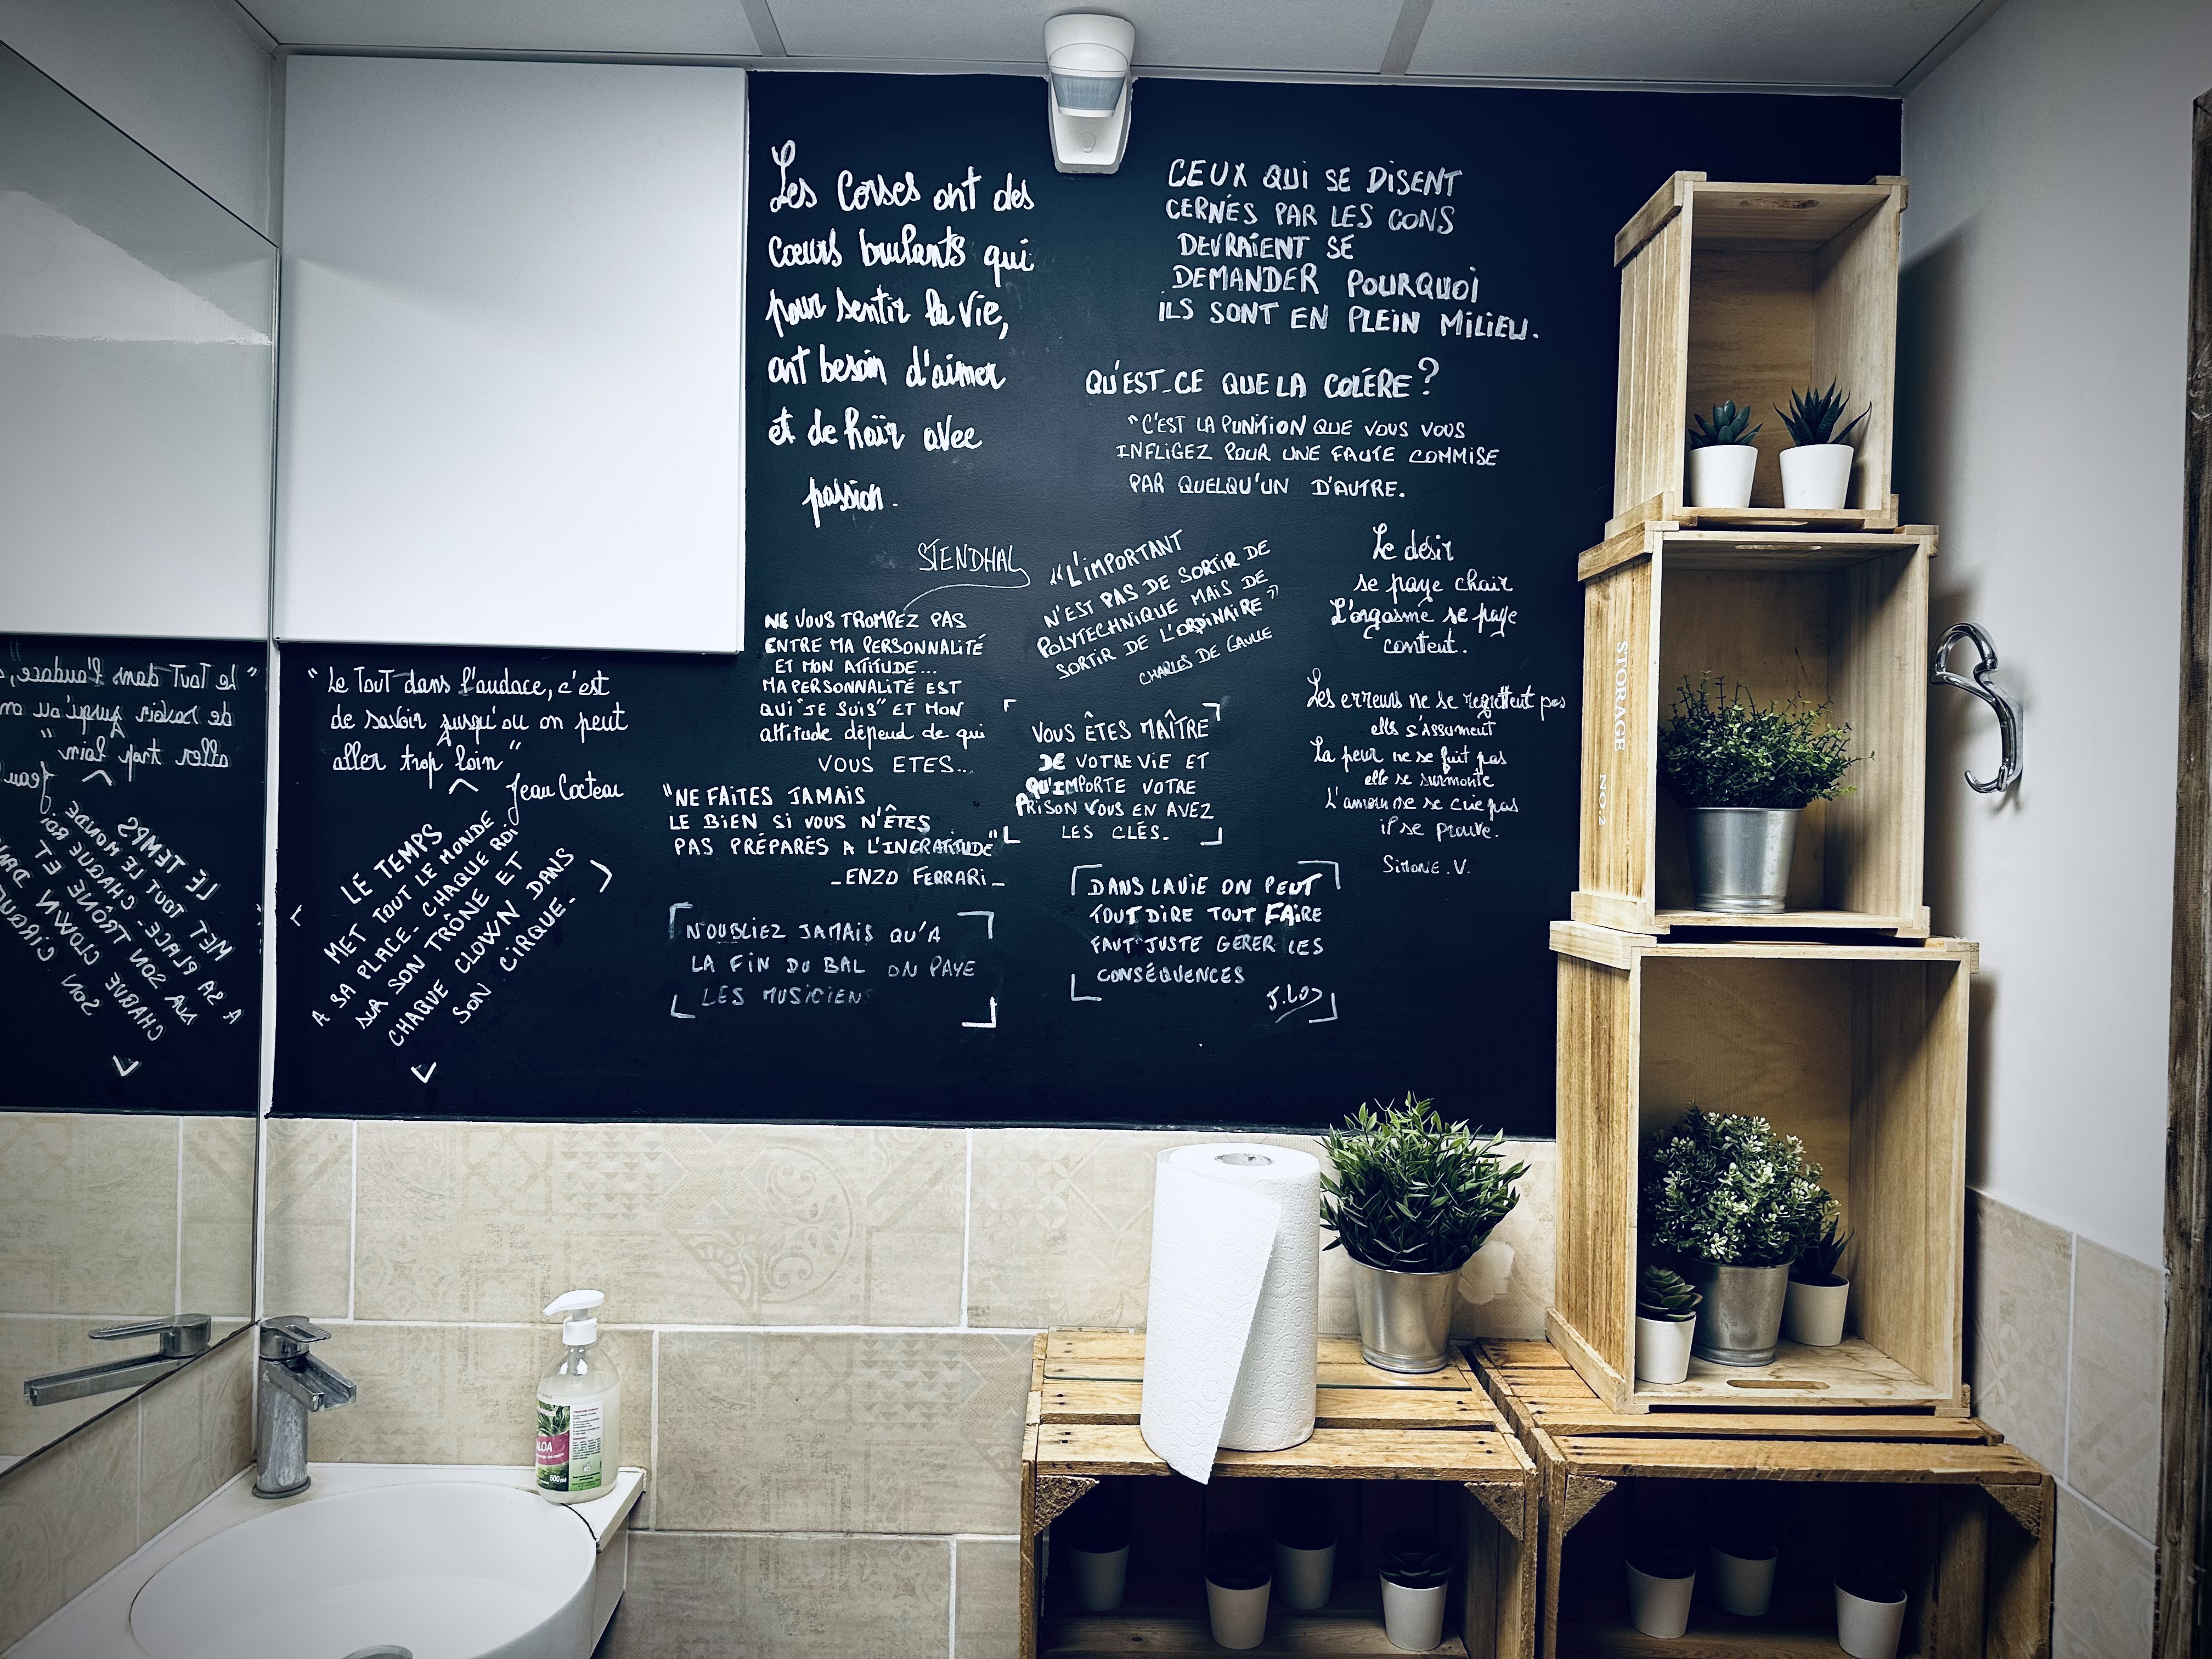 Les Corses ont des
cœurs brulants qui
pour sentir la vie,
ont besoin d'aimer
et de haïr avec
passion.
STENDHAL
CEUX QUI SE DISENT
CERNÉS PAR LES CONS
DEVRAIENT SE
DEMANDER POURQUOI
ILS SONT EN PLEIN MILIEU.
QU'EST-CE QUE LA COLÉRE?
"C'EST LA PUNITION QUE VOUS VOUS
INFLIGEZ POUR UNE FAUTE COMMISE
PAR QUELQU'UN D'AUTRE.
"L'IMPORTANT
N'EST PAS DE SORTIR DE
POLYTECHNIQUE MAIS DE
SORTIR DE L'ORDINAIRE"
CHARLES DE GAULLE
Le désir
se paye chair
L'orgasme se paye
content.
NE VOUS TROMPEZ PAS
ENTRE MA PERSONNALITÉ
ET MON ATTITUDE...
MA PERSONNALITÉ EST
QUI "JE SUIS" ET MON
attitude dépend de qui
VOUS ETES...
VOUS ÊTES MAÎTRE
DE VOTRE VIE ET
QU'IMPORTE VOTRE
PRISON VOUS EN AVEZ
LES CLÉS.
Les erreurs ne se regrettent pas
elles s'assument
La peur ne se fuit pas
elle se surmonte
L'amour ne se crie pas
il se prouve.
SIMONE.V.
"Le Tout dans l'audace, c'est
de savoir jusqu'ou on peut
aller trop loin"
Jean Cocteau
"NE FAITES JAMAIS
LE BIEN SI VOUS N'ÊTES
PAS PRÉPARÉS A L'INGRATITUDE"
_ENZO FERRARI_
LE TEMPS
MET TOUT LE MONDE
A SA PLACE. CHAQUE ROI
SUR SON TRÔNE ET
CHAQUE CLOWN DANS
SON CIRQUE.
N'OUBLIEZ JAMAIS QU'A
LA FIN DU BAL ON PAYE
LES MUSICIENS
DANS LA VIE ON PEUT
TOUT DIRE TOUT FAIRE
FAUT JUSTE GERER LES
CONSÉQUENCES
STORAGE
NO2
500ml